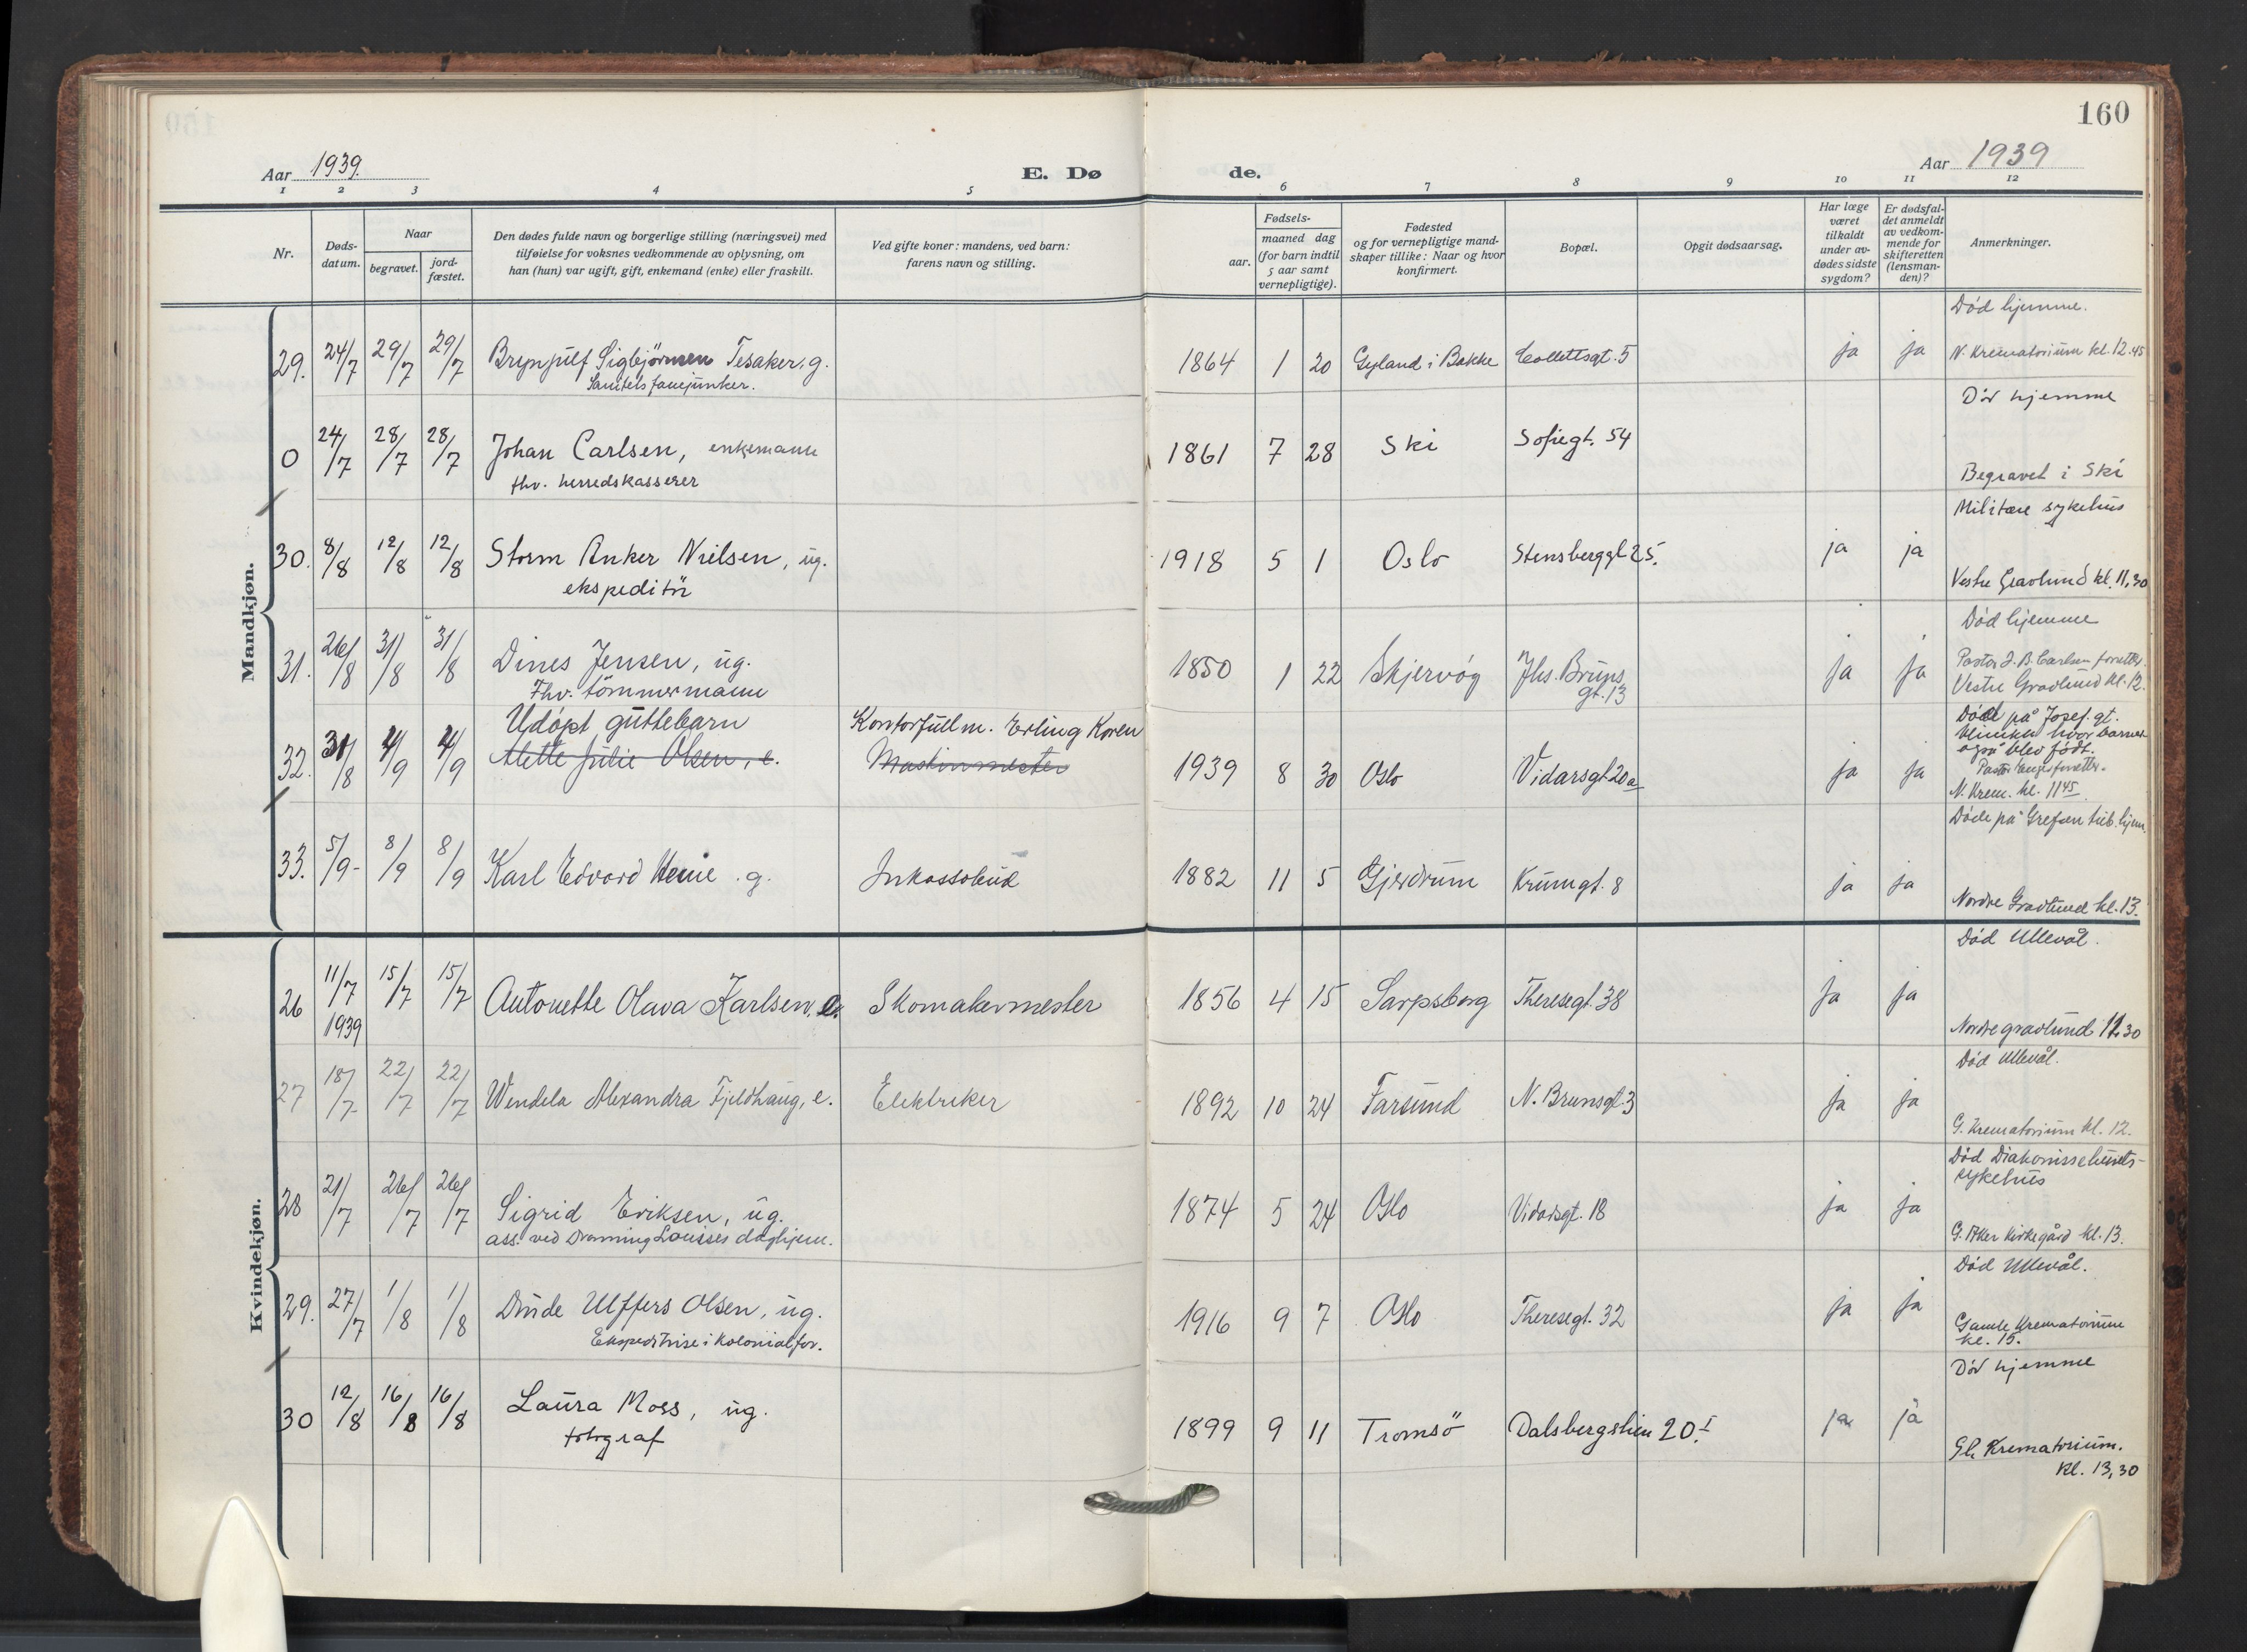 160
Aar 1939.
E. Døde.
Aar 1939
1 2 3 4 5 6 7 8 9 10 11 12
Nr.
Døds-
datum.
Naar
begravet.
jord-
fæstet.
Den dødes fulde navn og borgerlige stilling (næringsvei) med
tilføielse for voksnes vedkommende av oplysning, om
han (hun) var ugift, gift, enkemand (enke) eller fraskilt.
Ved gifte koner: mandens, ved barn:
farens navn og stilling.
Fødsels-
aar.
maaned dag
(for barn indtil
5 aar samt
vernepligtige).
Fødested
og for vernepligtige mand-
skaper tillike: Naar og hvor
konfirmert.
Bopæl.
Opgit dødsaarsag.
Har læge
været
tilkaldt
under av-
dødes sidste
sygdom?
Er dødsfal-
det anmeldt
av vedkom-
mende for
skifteretten
(lensman-
den)?
Anmerkninger.
Mandkjøn.
Død hjemme.
29. 24/7 29/7 29/7 Brynjulf Sigbjørnsen Tesaker, g. 1864 1 20 Gyland i Bakke Collettsgt. 5 ja ja N. Krematorium kl. 12.45
Sanitetsfanejunker.
Død hjemme
0 24/7 28/7 28/7 Johan Carlsen, enkemann 1861 7 28 Ski Sofiegt. 54
fhv. herredskasserer
Begravet i Ski
Militære sykehus
30. 8/8 12/8 12/8 Storm Anker Nielsen, ug. 1918 5 1 Oslo Stensberggt 25. ja ja
ekspeditør
Vestre Gravlund kl. 11,30
Død hjemme
31. 26/8 31/8 31/8 Dines Jensen, ug. 1850 1 22 Skjervøy Jhs. Bruns ja ja Pastor J. B. Carlsen forretter.
Fhv. tømmermann gt. 13 Vestre Gravlund kl. 12.
Udøpt guttebarn Kontorfullm. Erling Koren
Død på Josef. gt.
klinikk hvor barnet
også blev født.
32. 31/8 4/9 4/9 Alette Julie Olsen, e. Maskinmester 1939 8 30 Oslo Vidarsgt 20a ja ja
Pastor forretter.
N. Krem. kl. 11 45
Døde på Grefsen tub. hjem.
33. 5/9 8/9 8/9 Karl Edvard g. Inkassobud 1882 11 5 Gjerdrum Krumgt. 8 ja ja
Nordre Gravlund kl. 13.
Kvindekjøn.
Død Ullevål.
26 11/7 1939 15/7 15/7 Antonette Olava Karlsen, e. Skomakermester 1856 4 15 Sarpsborg Theresegt. 38 ja ja
Nordre gravlund 12.30
Død Ullevål.
27 18/7 22/7 22/7 Wendela Alexandra Fjeldhaug, e. Elektriker 1892 10 24 Farsund N. Brunsgt. 3 ja ja
G. Krematorium kl. 12.
Død Diakonissehusets-
sykehus
28 21/7 26/7 26/7 Sigrid Eriksen, ug. 1874 5 24 Oslo Vidarsgt. 18 ja ja
ass. ved Dronning Louises daghjem.
G. Aker kirkegård kl. 13.
Død Ullevål.
29. 27/7 1/8 1/8 Dinde Ulffers Olsen, ug. 1916 9 7 Oslo Theresegt. 32 ja ja
Ekspeditrise i kolonialfor.
Gamle Krematorium
kl. 15.
Død hjemme
30 12/8 16/8 16/8 Laura Moss, ug. 1899 9 11 Tromsö Dalsbergstien 20 I ja ja
fotograf
Gl. Krematorium.
kl. 13,30